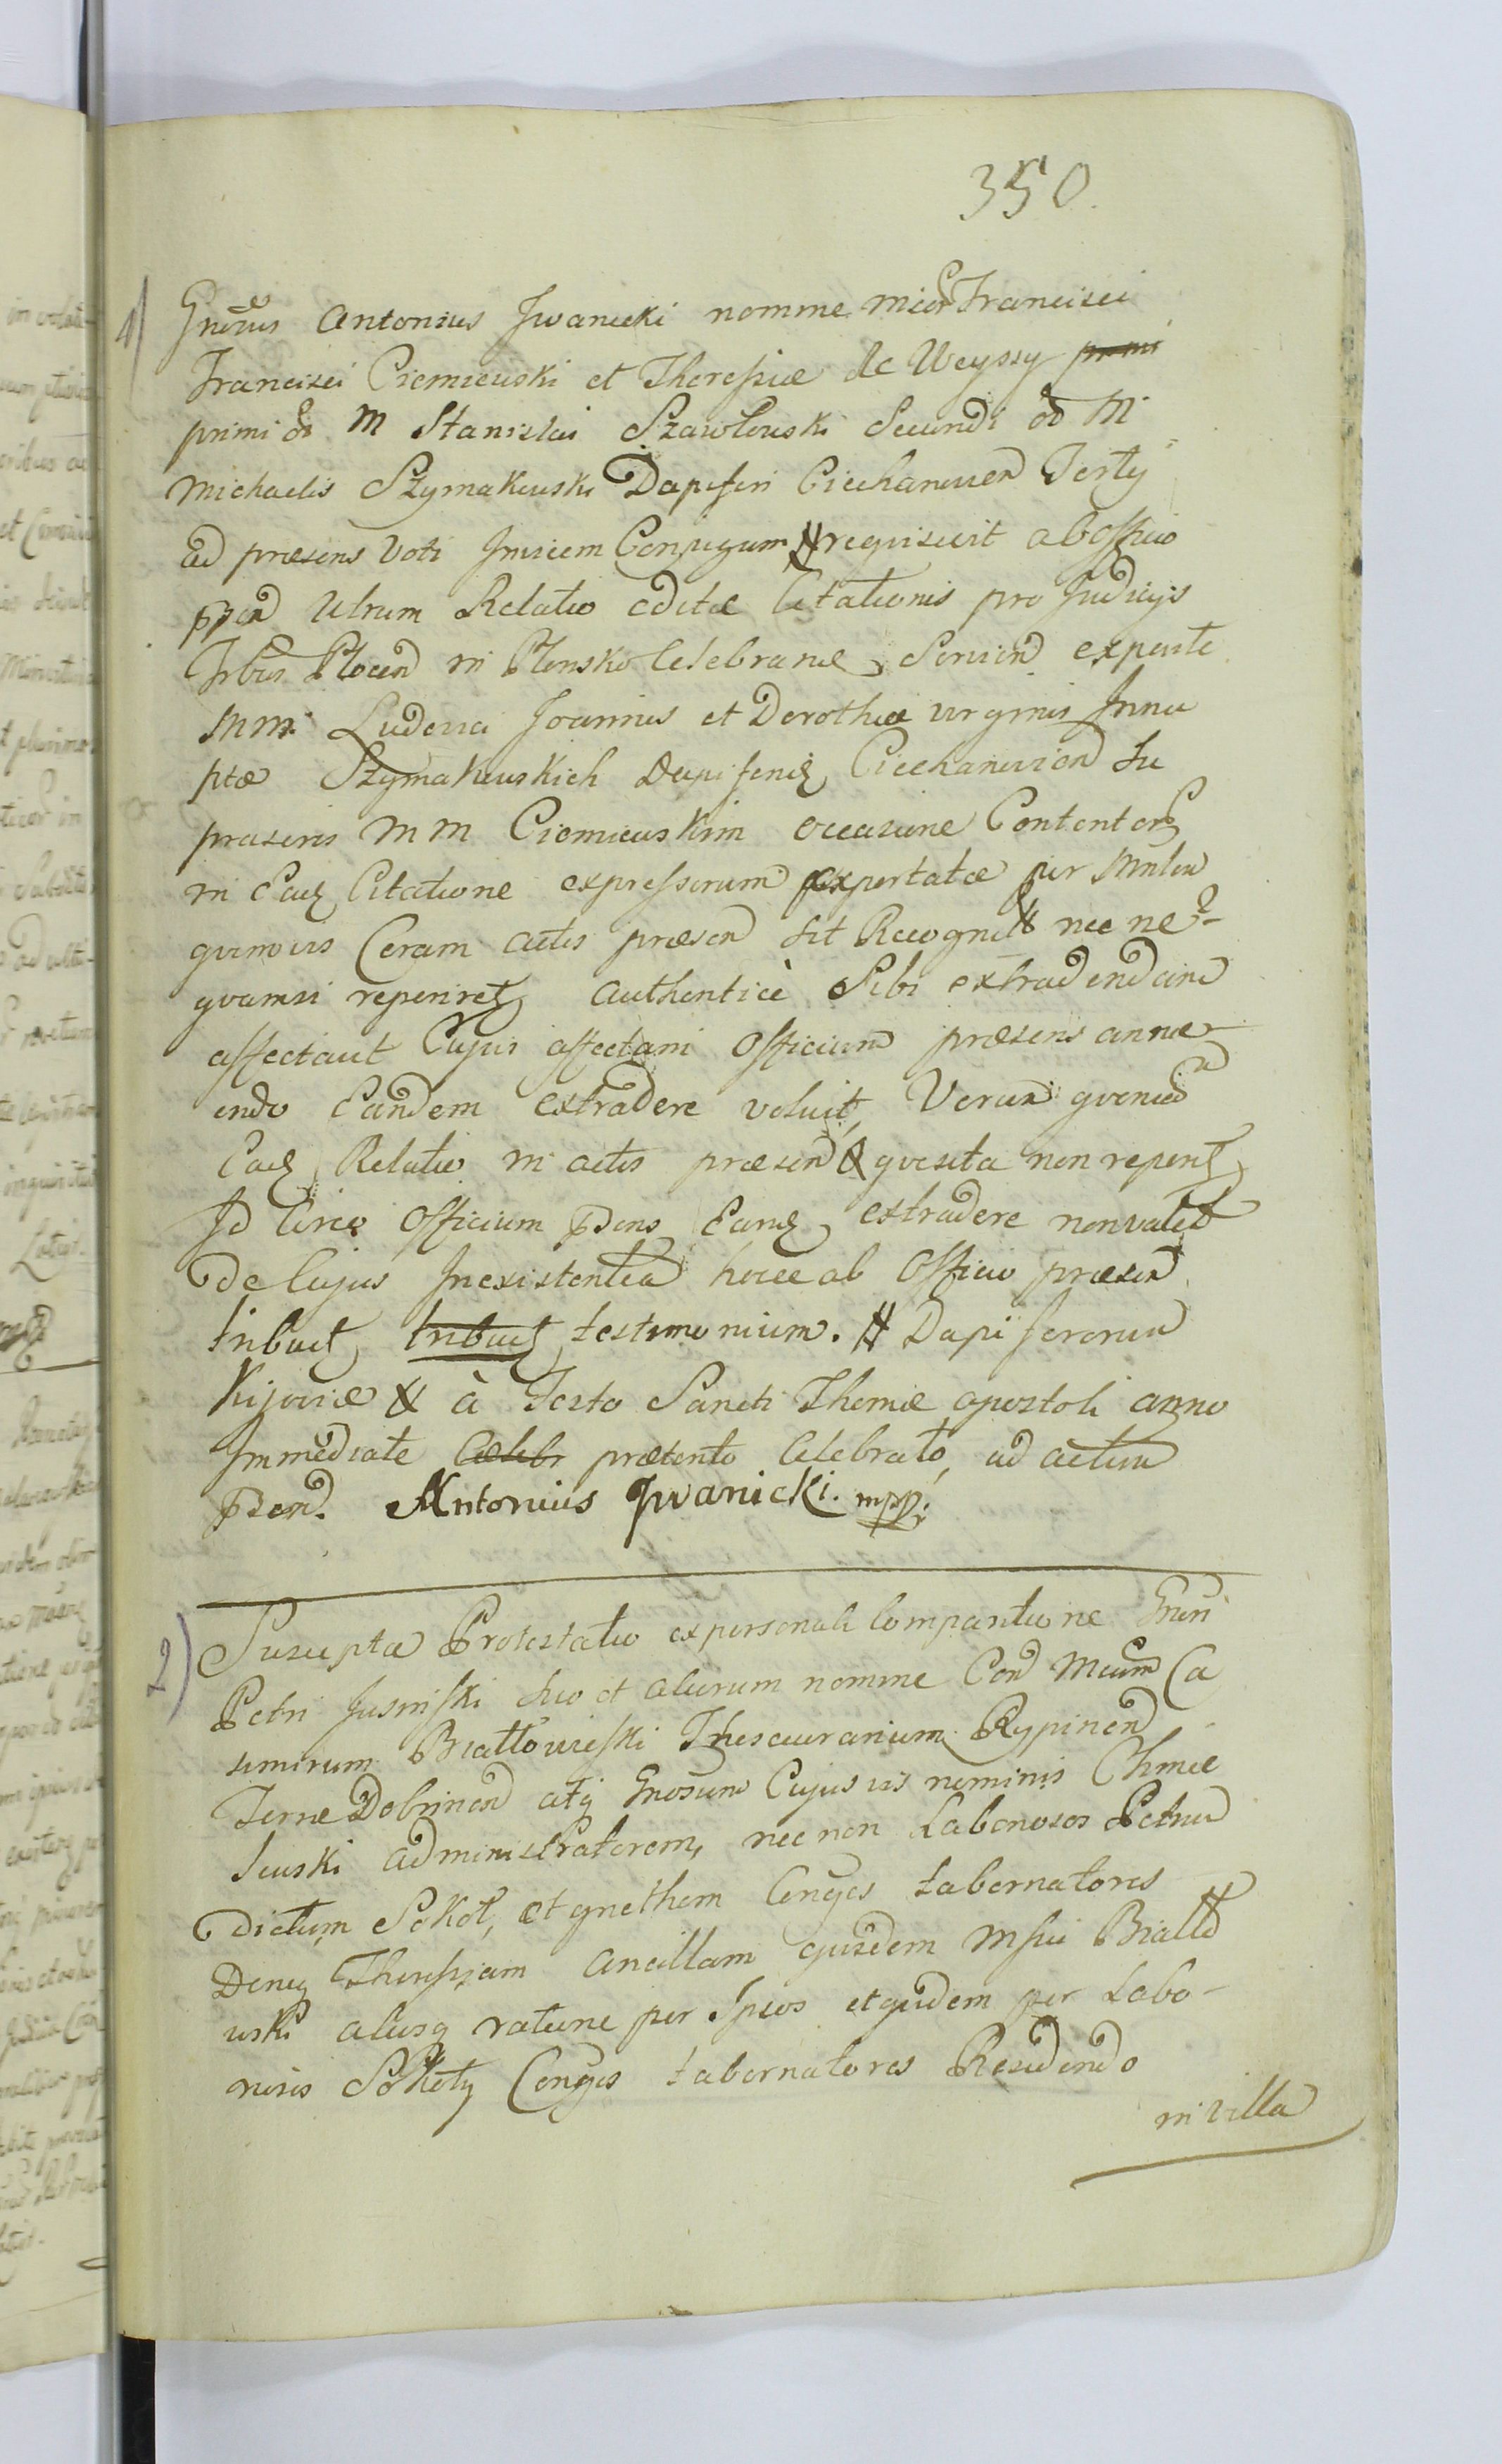 350.
1)
Gnosus Antonius Jwanicki nomine Mcor Francisci
Francisci Ciemiewski et Theresiae de Weyssy primi
primi M Stanislai Szawłowski Secundi M
Michaelis Szymakowski Dapiferi Ciechanovien Tertij
ad praesens Voti Jnvicem Conjugum requisivit ab officio
ppnn Utrum Relatio editae Citationis pro Judicijs
Trbus Plocen in Płonsko Celebrand Servien ex parte
MM Joannis et Dorotheae virginis Jnnu
ptae Szymakowskich Dapiferid Ciechanovien Su
praseris MM Ciemiewskim occasione Contentor
in Eadz Citatione expressorum exportatae per Mnlem
quemvis Coram actis praesen sit Recognita nec ne?
quamsi reperiretz authenticè Sibi extradendam
affectavit Cujus affectani Officium praesens annu
endo Eandem extradere voluit, Verum quoniam
Eadz Relatio in actis praesen quaesita non reperitz
Jd Circo Officium Psens Eandz extradere non valet
de Cujus Jnexistentia hocce ab Officio praesen
tribuitz tribuitz testimonium. # Dapiferorum
Kijoviae & à Festo Sancti Thomae apostoli anno
Jmmediate Caelebr praetento Celebrato, ad actum
Psen. Antonius Jwanicki. mpp.
2)
Suscepta Protestatio ex personali Comparitione Gnen
Petri Jusinski suo et aliorum nomine Con Mcum Ca
simirum Białłowieski Thesaurarium Rypinen
Terrae Dobrinen atq Gnosum Cujusvis nominis Chmie
lewski administratorem, nec non Laboriosos Petrum
dictum Sokoł, et gnetham Conjges tabernatores
Denq Theresiam ancillam ejusdem Msci Białło
wski aliosq ratione per Jpsos et quidem per Labo-
riosos Sokoły Conjges tabernatores Residendo
in villa